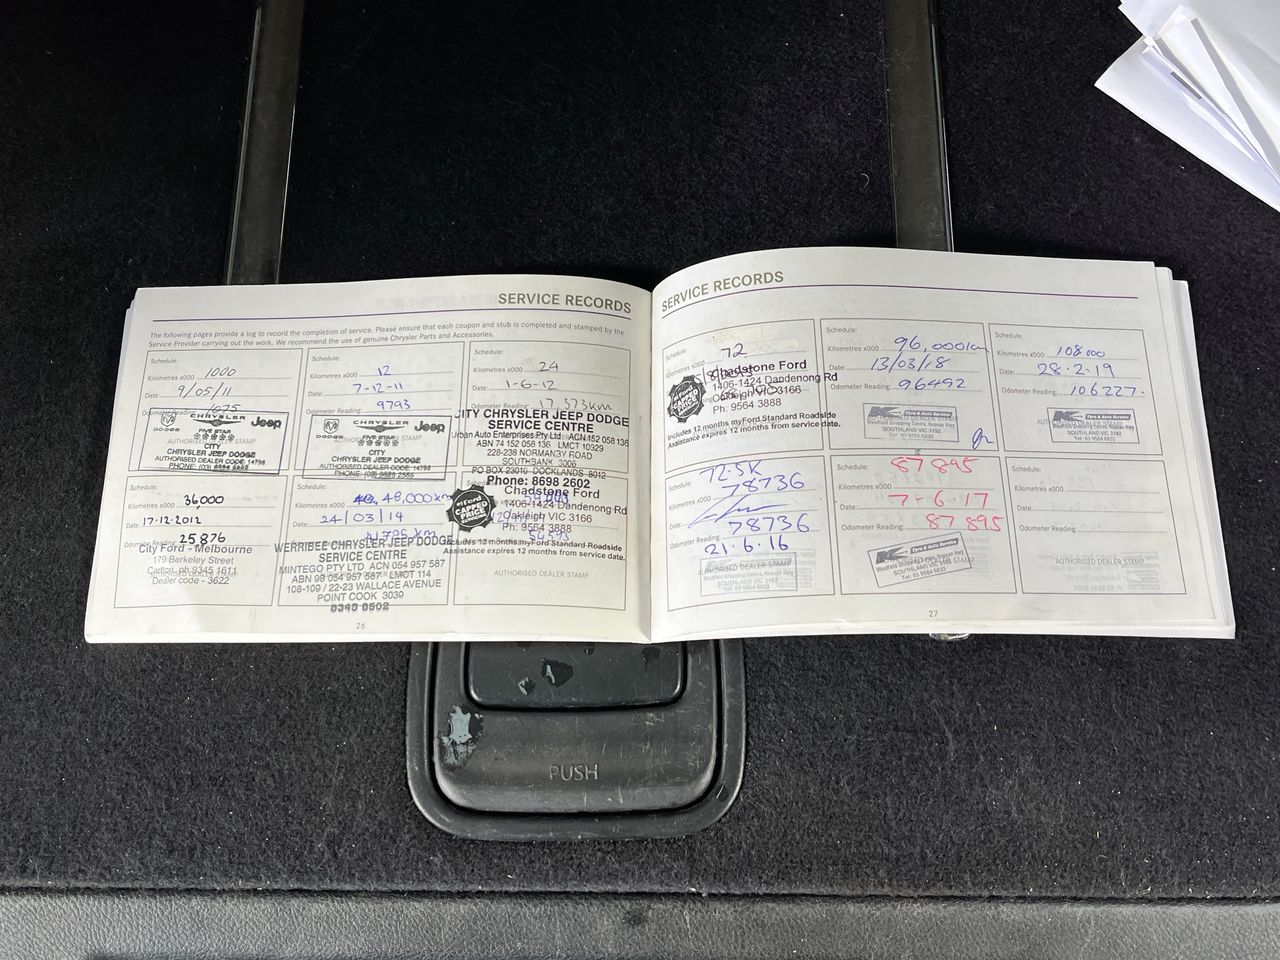 SERVICE RECORDS
The following pages provide a log to record the completion of service. Please ensure that each coupon and stub is completed and stamped by the
Service Provider carrying out the work. We recommend the use of genuine Chrysler Parts and Accessories.
Schedule:
Kilometres x000 1000
Date: 9/05/11
Odometer Reading: 1075
CHRYSLER
DODGE Jeep
FIVE STAR
AUTHORISED DEALER STAMP
CITY
CHRYSLER JEEP DODGE
AUTHORISED DEALER CODE: 14799
PHONE: (03)
Schedule:
Kilometres x000 12
Date: 7-12-11
Odometer Reading: 9793
CHRYSLER
DODGE Jeep
FIVE STAR
CITY
CHRYSLER JEEP DODGE
AUTHORISED DEALER CODE: 14799
PHONE: (03)
Schedule:
Kilometres x000 24
Date: 1-6-12
Odometer Reading: 17,373km
CITY CHRYSLER JEEP DODGE
SERVICE CENTRE
Urban Auto Enterprises Pty Ltd ACN 152 058 136
ABN 74 152 058 136 LMCT 10929
228-238 NORMANBY ROAD
SOUTHBANK 3006
PO BOX 23010 DOCKLANDS 8012
Phone: 8698 2602
Schedule:
Kilometres x000 36,000
Date: 17.12.2012
Odometer Reading: 25876
City Ford - Melbourne
179 Berkeley Street
Carlton. ph 9345 1611
Dealer code - 3622
Schedule:
Kilometres x000 48,000km
Date: 24/03/14
Odometer Reading:
WERRIBEE CHRYSLER JEEP DODGE
SERVICE CENTRE
MINTEGO PTY LTD ACN 054 957 587
ABN 98 054 957 587 LMCT 114
108-109 / 22-23 WALLACE AVENUE
POINT COOK 3030
8348 8502
Ford
CAPPED
PRICE
Chadstone Ford
1406-1424 Dandenong Rd
Oakleigh VIC 3166
Ph: 9564 3888
Includes 12 months myFord Standard Roadside
Assistance expires 12 months from service date.
AUTHORISED DEALER STAMP
26
SERVICE RECORDS
Schedule: 72
Kilometres x000
Chadstone Ford
1406-1424 Dandenong Rd
Oakleigh VIC 3166
Ph: 9564 3888
Includes 12 months myFord Standard Roadside
Assistance expires 12 months from service date.
Schedule:
Kilometres x000 96,000km
Date: 13/03/18
Odometer Reading: 96492
K Tyre & Auto Service
Westfield Shopping Centre, Nepean Hwy
SOUTHLAND VIC 3192
Tel: 03 9584 6833
Schedule:
Kilometres x000 108000
Date: 28.2.19
Odometer Reading: 106227.
K Tyre & Auto Service
Westfield Shopping Centre, Nepean Hwy
SOUTHLAND VIC 3192
Tel: 03 9584 6833
Schedule: 72.5K
Kilometres x000 78736
Date:
Odometer Reading: 78736
21.6.16
AUTHORISED DEALER STAMP
Schedule: 87895
Kilometres x000
Date: 7-6.17
Odometer Reading: 87895
K Tyre & Auto Service
Westfield Shopping Centre, Nepean Hwy
SOUTHLAND VIC 3192
Tel: 03 9584 6833
Schedule:
Kilometres x000
Date:
Odometer Reading:
AUTHORISED DEALER STAMP
27
PUSH